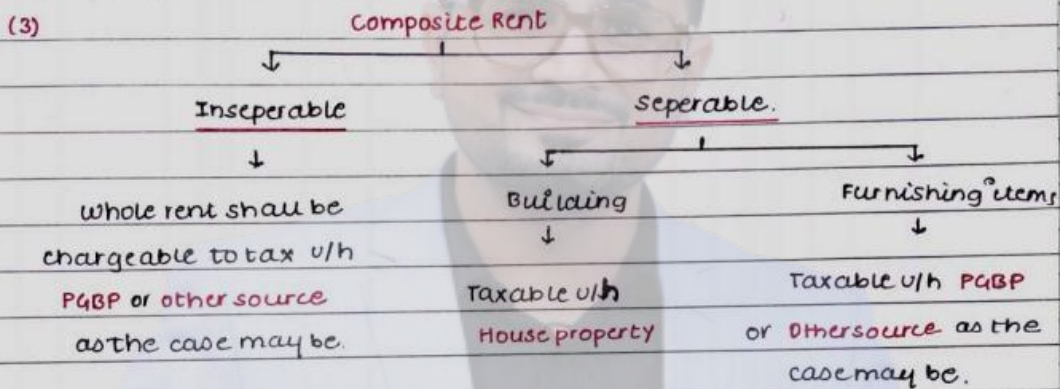 (3) Composite Rent
Inseperable
Seperable.
whole rent shall be
chargeable to tax u/h
PGBP or other source
as the case may be.
Building
Taxable u/h
House property
Furnishing items
Taxable u/h PGBP
or Othersource as the
case may be.